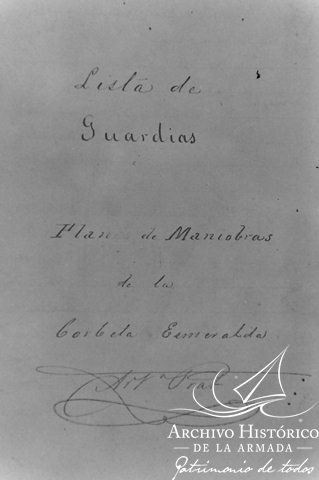 Lista de
Guardias
Plan de Maniobras
de la
Corbeta Esmeralda
Artº Prat
ARCHIVO HISTÓRICO
DE LA ARMADA
Patrimonio de todos